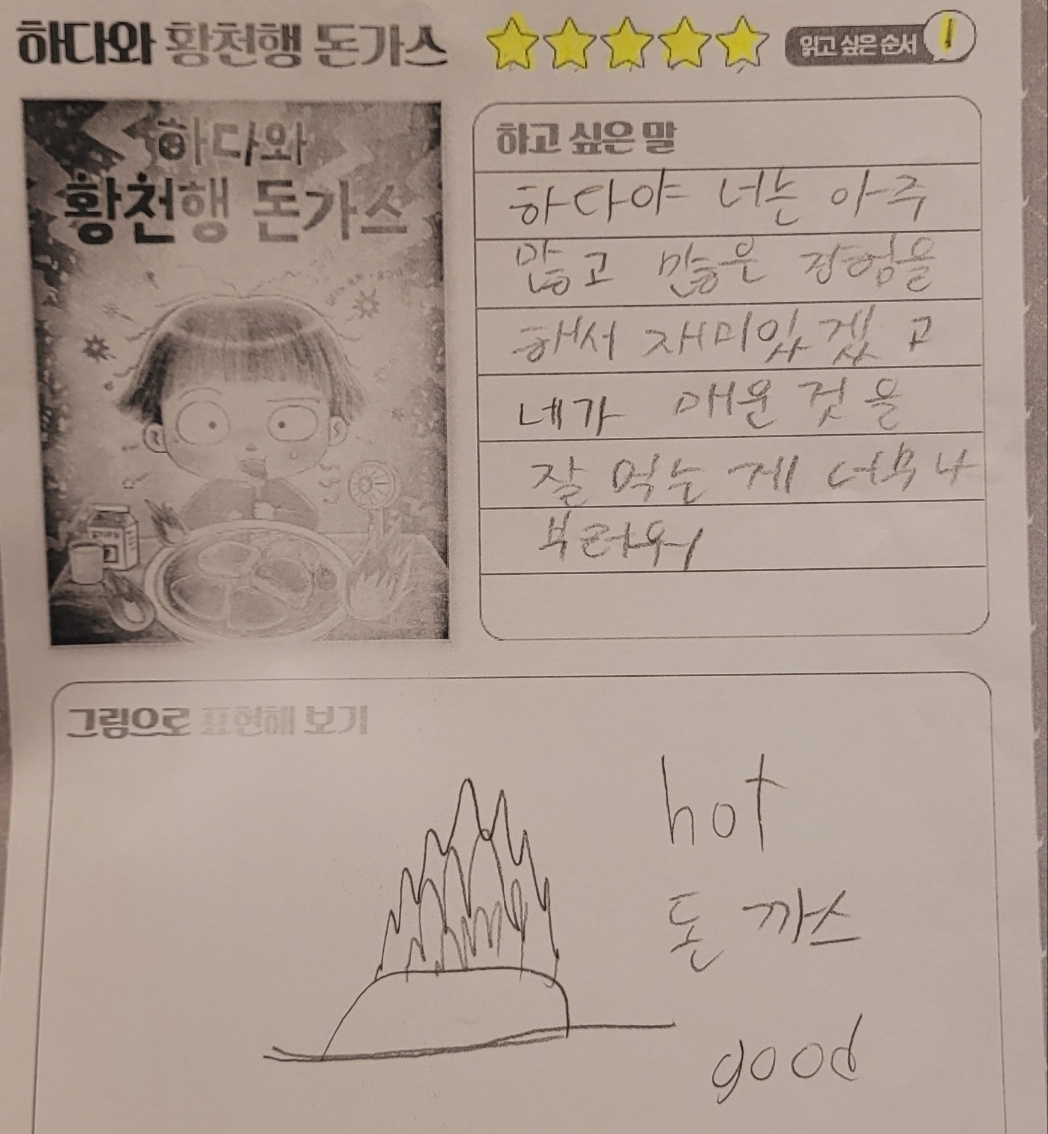 하다와 황천행 돈가스
읽고 싶은 순서 1
하다와
황천행 돈가스
하고 싶은 말
하다야 너는 아주
많고 많은 경험을
해서 재미있겠고
네가 매운 것을
잘 먹는 게 너무나
부러워
그림으로 표현해 보기
hot
돈까스
good